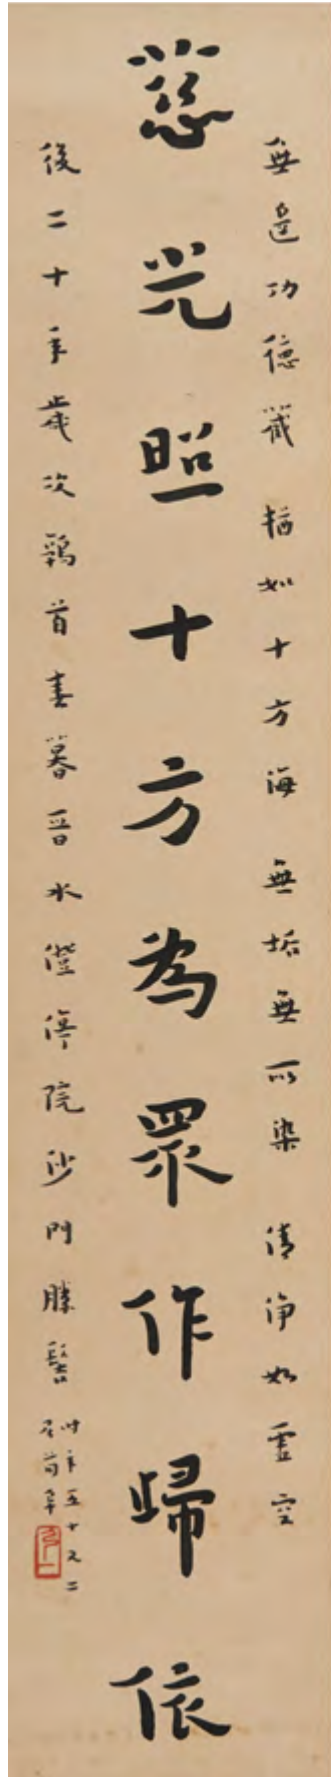 無邊功德藏 猶如十方海 無垢無所染 清淨如虛空
慈光照十方為眾作歸依
後二十年歲次鶉首春暮晉水澄渟院沙門勝髻
時年五十又二